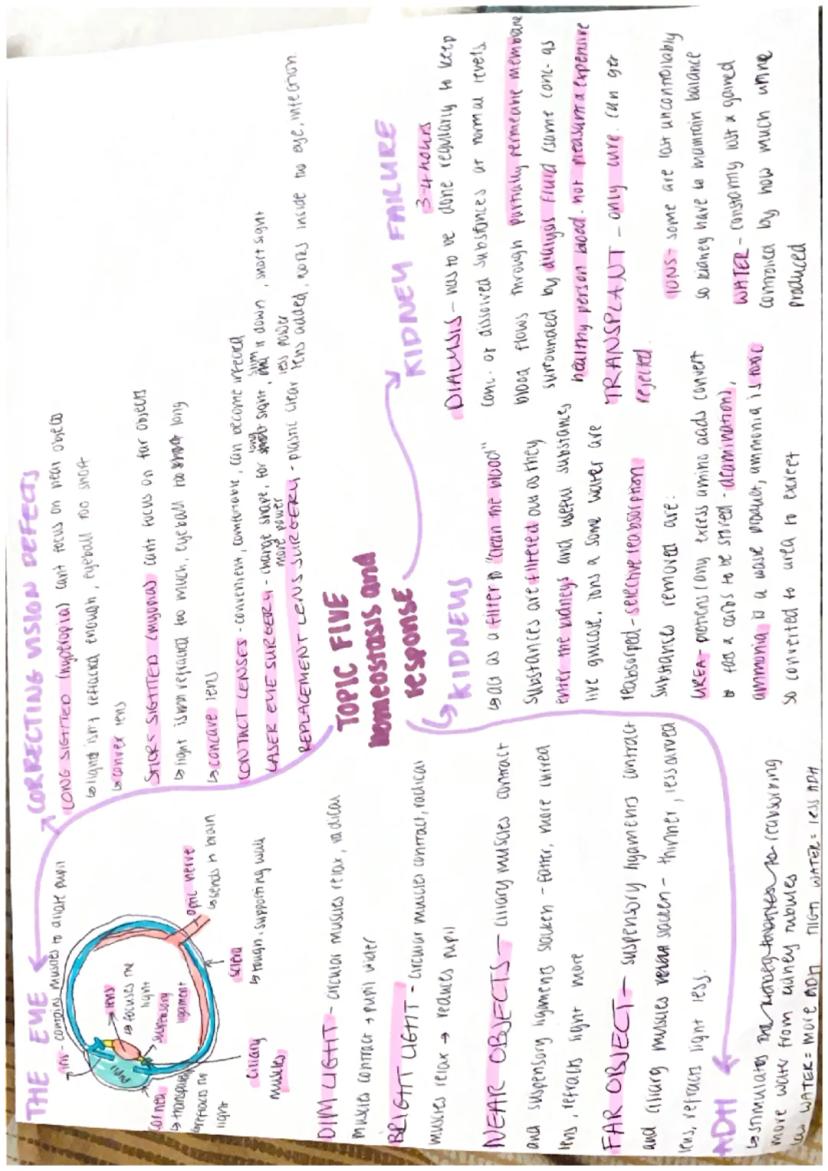 THE EYE
iris - contains muscles to dilate pupil
lens
↳ focuses the
light
suspensory
ligament
cornea
↳ transparent
refracts the
light
optic nerve
↳ sends to brain
sclera
↳ tough, supporting wall
ciliary
muscles
DIM LIGHT - circular muscles relax, radical
muscles contract → pupil wider
BRIGHT LIGHT - circular muscles contract, radical
muscles relax → reduces pupil
NEAR OBJECTS - ciliary muscles contract
and suspensory ligaments slacken - fatter, more curved
lens, refracts light more
FAR OBJECT - suspensory ligaments contract
and ciliary muscles slacken - thinner, less curved
lens, refracts light less.
ADH
↳ stimulates the kidney tubules to reabsorbing
more water from kidney tubules
low WATER = more ADH HIGH WATER = less ADH
CORRECTING VISION DEFECTS
LONG SIGHTED (hyperopia) cant focus on near objects
↳ light isn't refracted enough, eyeball too short
↳ convex lens
SHORT SIGHTED (myopia) cant focus on far objects
↳ light is refracted too much, eyeball too long
↳ concave lens
CONTACT LENSES - convenient, comfortable, can become infected
LASER EYE SURGERY - change shape, for long sight, slim it down, short sight
more power less power
REPLACEMENT LENS SURGERY - plastic clear lens added, risks inside the eye, infection
TOPIC FIVE
homeostasis and
response
KIDNEYS
↳ act as a filter to "clean the blood"
Substances are filtered out as they
enter the kidneys and useful substances
like glucose, ions & some water are
reabsorbed - selective reabsorption
Substances removed are:
UREA - proteins (any excess amino acids convert
to fats & carbs to be stored - deamination),
ammonia is a waste product, ammonia is toxic
so converted to urea to excrete
KIDNEY FAILURE
3-4 hours
DIALYSIS - has to be done regularly to keep
conc. of dissolved substances at normal levels
blood flows through partially permeable membrane
surrounded by dialysis fluid (same conc. as
healthy person blood. not pleasurable & expensive
TRANSPLANT - only cure. can get
rejected.
IONS - some are lost uncontrollably
so kidney have to maintain balance
WATER - constantly lost & gained
controlled by how much urine
produced